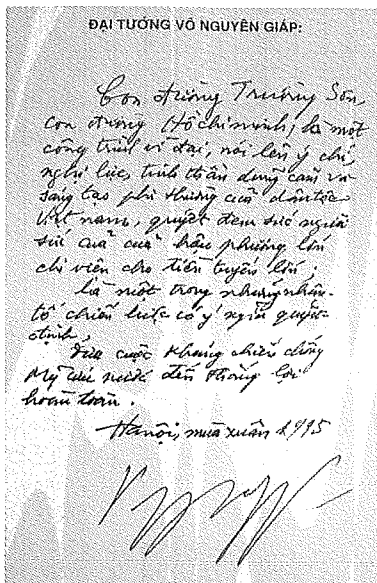 ĐẠI TƯỚNG VÕ NGUYÊN GIÁP:
Con đường Trường Sơn,
con đường Hồ Chí Minh, là một
công trình vĩ đại, nói lên ý chí,
nghị lực, tinh thần dũng cảm và
sáng tạo phi thường của dân tộc
Việt nam, quyết đem sức người
sức của của hậu phương lớn
chi viện cho tiền tuyến lớn;
là một trong những nhân
tố chiến lược có ý nghĩa quyết
định,
đưa cuộc kháng chiến chống
Mỹ cứu nước đến thắng lợi
hoàn toàn.
Hà nội, mùa xuân 1995